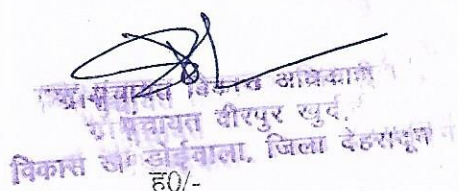 ग्रा० पंचायत विकास अधिकारी
ग्रा० पंचायत वीरपुर खुर्द,
विकास ख० डोईवाला, जिला देहरादून
ह0/-